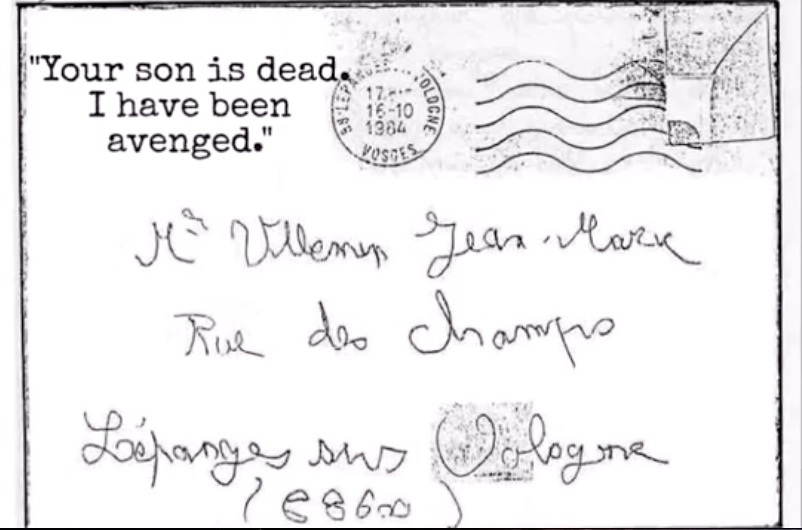 "Your son is dead.
I have been
avenged."
88 LÉPANGES VOLOGNE
17
16-10
1984
VOSGES
Mr Villemin Jean-Marie
Rue des champs
Lépanges sur Vologne
(88600)